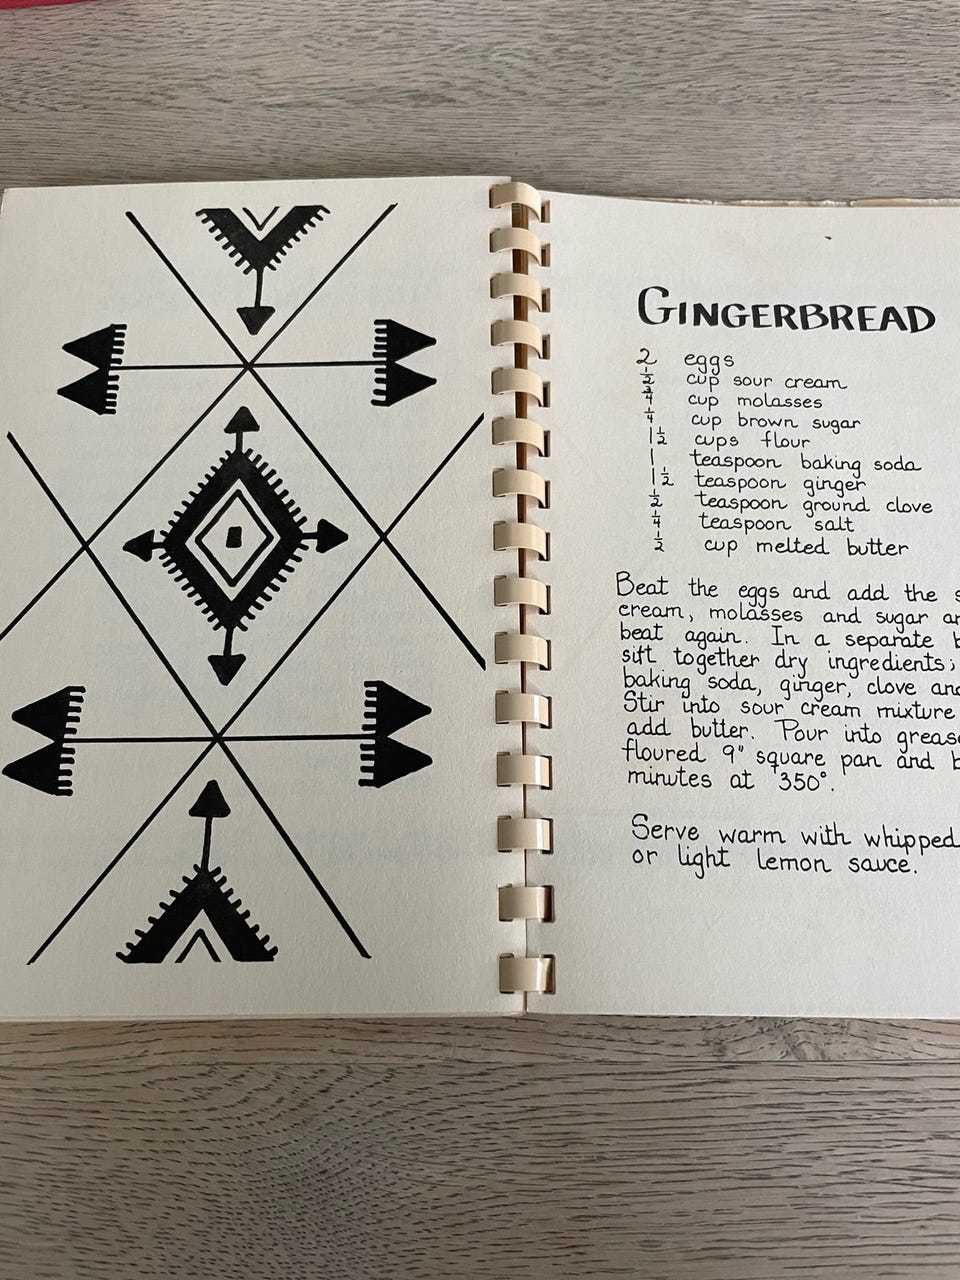 GINGERBREAD
2 eggs
1/2 cup sour cream
3/4 cup molasses
1/4 cup brown sugar
1 1/2 cups flour
1 teaspoon baking soda
1 1/2 teaspoon ginger
1/2 teaspoon ground clove
1/4 teaspoon salt
1/2 cup melted butter
Beat the eggs and add the
cream, molasses and sugar
beat again. In a separate
sift together dry ingredients;
baking soda, ginger, clove
Stir into sour cream mixture
add butter. Pour into
floured 9" square pan and
minutes at 350°.
Serve warm with whipped
or light lemon sauce.